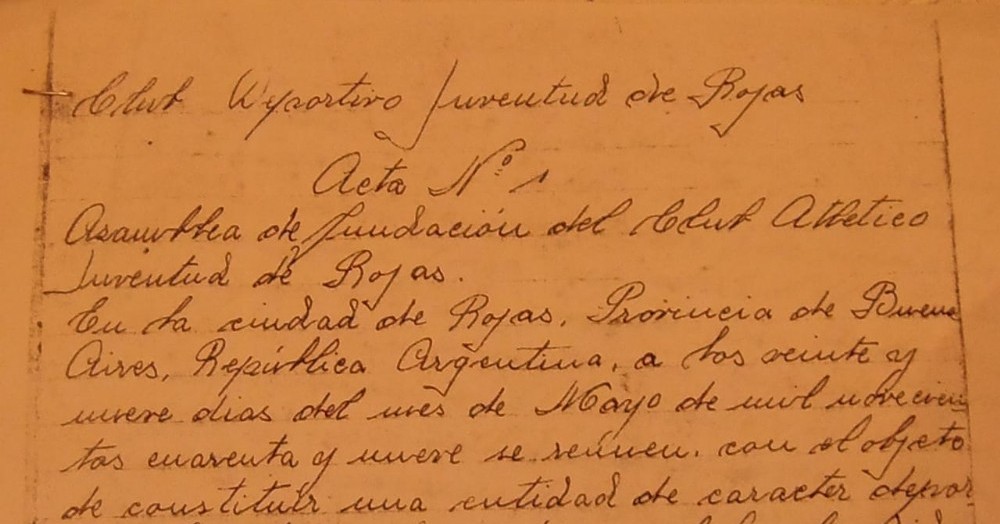 Club Deportivo Juventud de Rojas
Acta Nº 1
Asamblea de fundación del Club Atletico
Juventud de Rojas.
En la ciudad de Rojas, Provincia de Buenos
Aires, República Argentina, a los veinte y
nueve dias del mes de Mayo de mil novecien
tos cuarenta y nueve se reúnen, con el objeto
de constituír una entidad de caracter depor